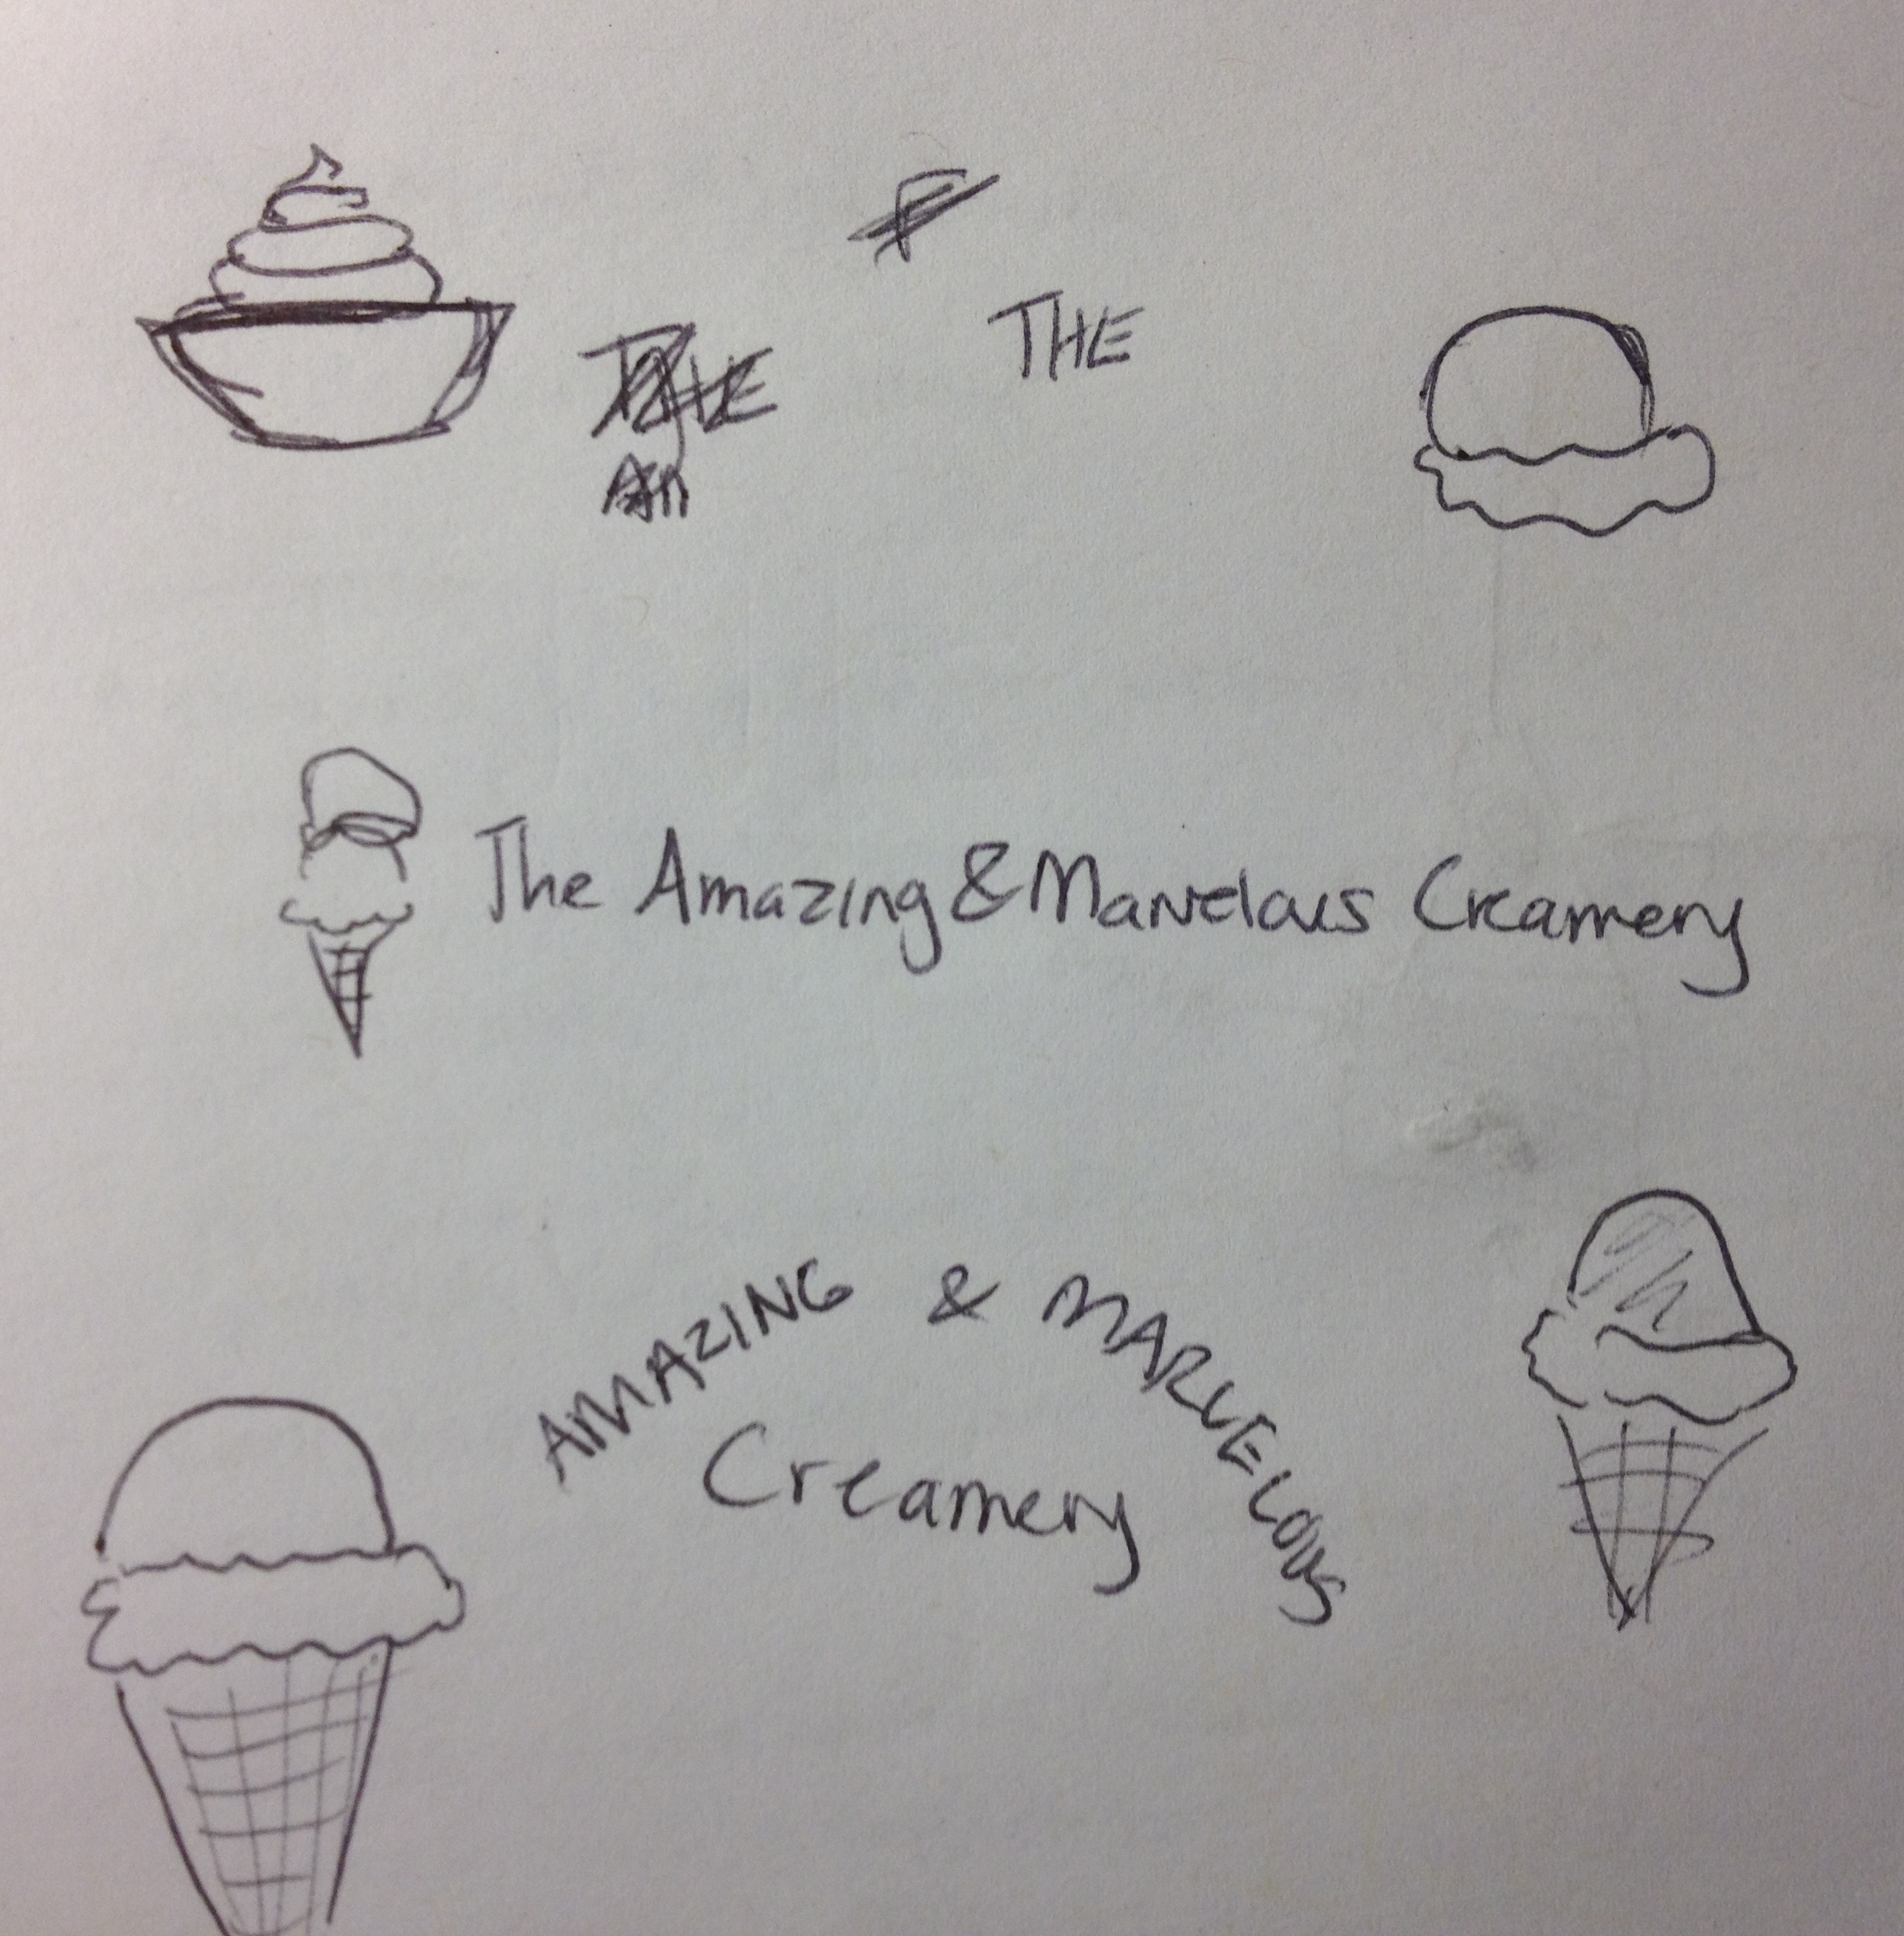 THE
The Amazing & Marvelous Creamery
AMAZING & MARVELOUS
Creamery